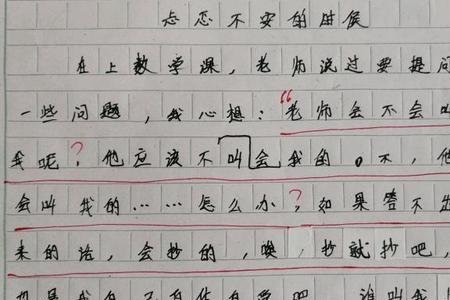 忐忑不安的时候
在上数学课，老师说过要提问
一些问题，我心想：“老师会不会叫
我呢？他应该不叫会我的。不，他
会叫我的……怎么办？如果答不出
来的话，会抄的，唉，抄就抄吧，